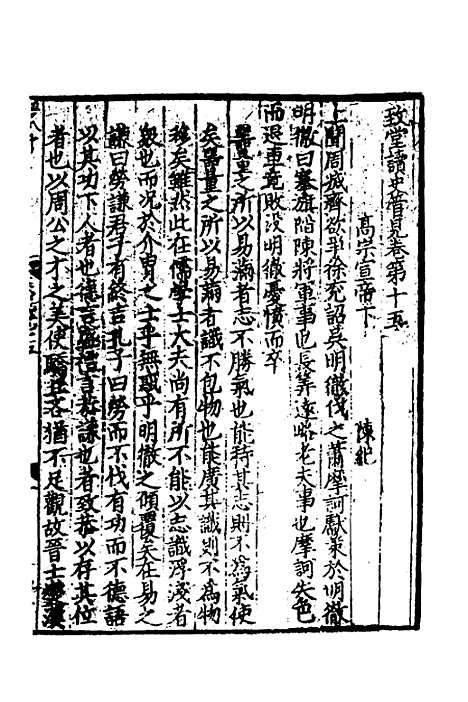 致堂讀史管見卷第十五
高宗宣帝下
陳紀
上聞周滅齊欲爭徐兗詔吳明徹伐之蕭摩訶獻策於明徹
明徹曰搴旗陷陳將軍事也長筭遠略老夫事也摩訶失色
而退軍竟敗没明徹憂憤而卒
器量之所以易滿者志不勝氣也能持其志則不爲氣使
矣器量之所以易滿者識不包物也能廣其識則不為物
移矣雖然此在儒學士大夫尚有所不能以志識浮淺者
衆也而況於介冑之士乎無惑乎明徹之傾覆矣在易之
謙曰勞謙君子有終吉孔子曰勞而不伐有功而不德語
以其功下人者也德言盛禮言恭謙也者致恭以存其位
者也以周公之才之美使驕且吝猶不足觀故晉士燮